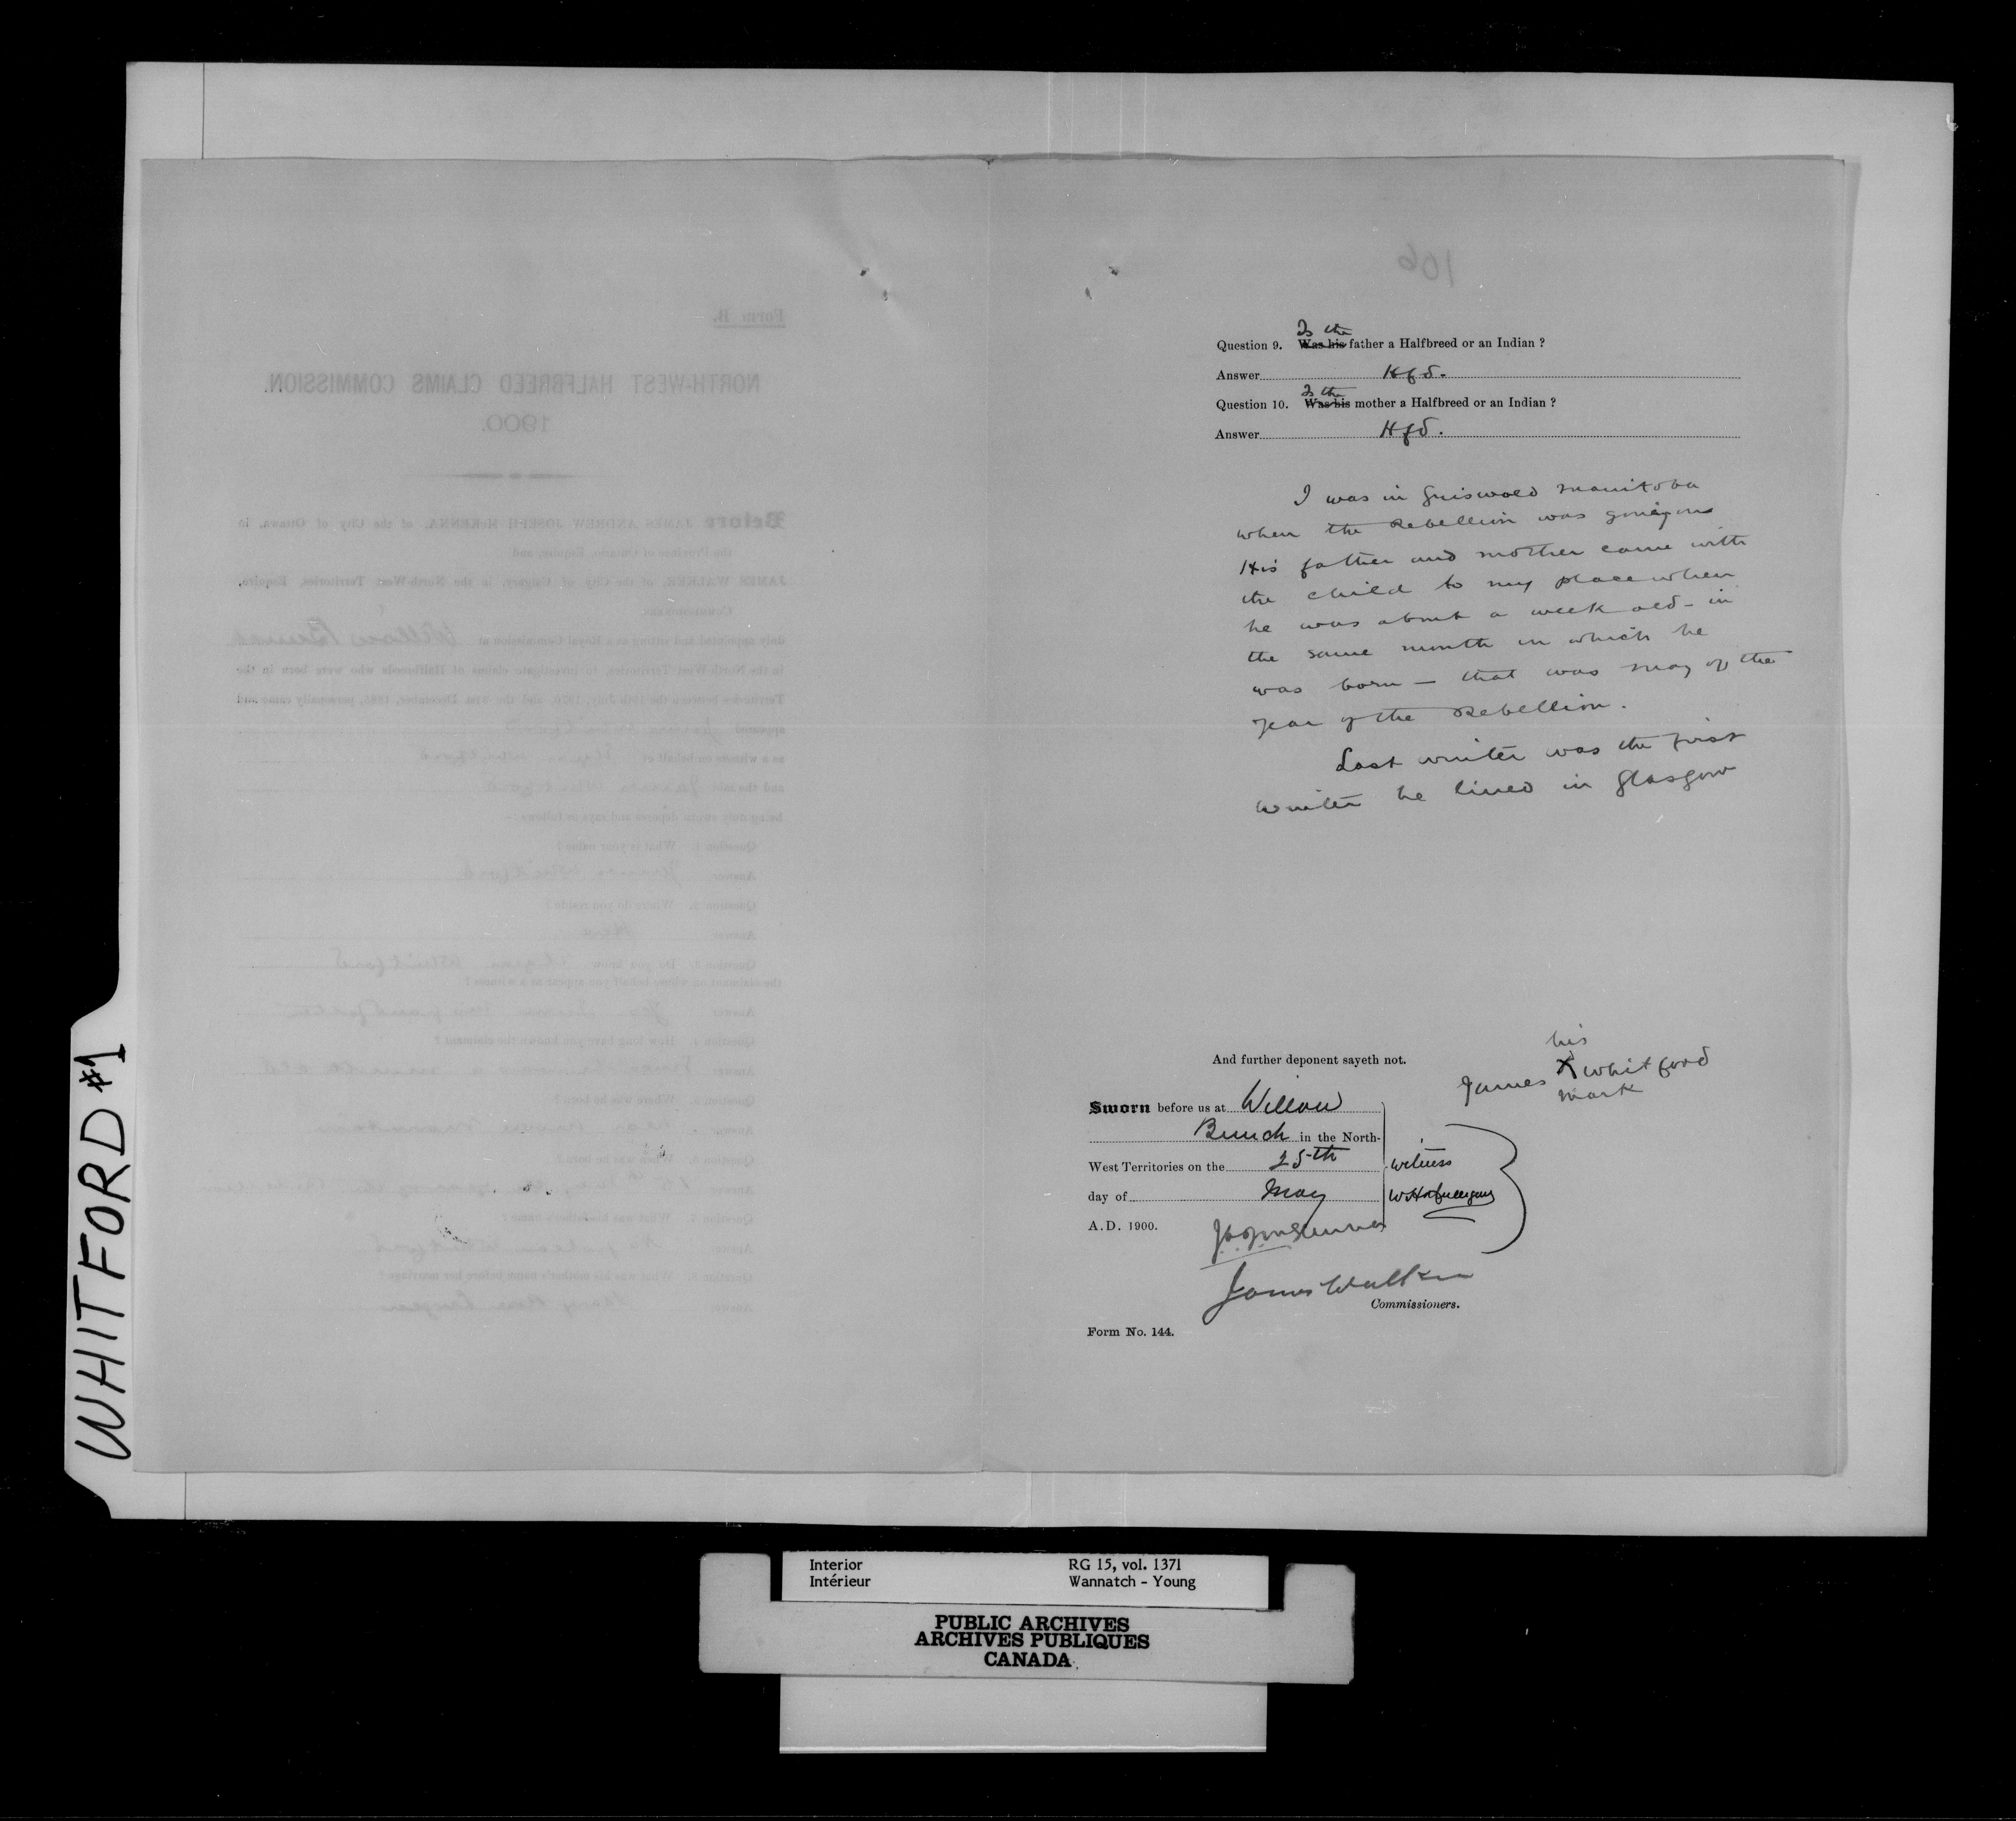 WHITFORD #1
106
Form B.
NORTH-WEST HALFBREED CLAIMS COMMISSION.
1900.
Before JAMES ANDREW JOSEPH McKENNA, of the City of Ottawa, in
the Province of Ontario, Esquire, and
JAMES WALKER, of the City of Calgary, in the North-West Territories, Esquire,
Commissioners
duly appointed and sitting as a Royal Commission at Willow Bunch
in the North-West Territories, to investigate claims of Halfbreeds who were born in the
Territories between the 15th July, 1870, and the 31st December, 1885, personally came and
appeared James Whitford
as a witness on behalf of Whitford
and the said James Whitford
being duly sworn depose and says as follows:—
Question 1. What is your name?
Answer James Whitford
Question 2. Where do you reside?
Answer
Question 3. Do you know Whitford
the claimant on whose behalf you appear as a witness?
Answer Yes
Question 4. How long have you known the claimant?
Answer
Question 5. Where was he born?
Answer
Question 6. When was he born?
Answer
Question 7. What was his father's name?
Answer Whitford
Question 8. What was his mother's name before her marriage?
Answer
Is the
Question 9. Was his father a Halfbreed or an Indian ?
Answer Hfd.
Is the
Question 10. Was his mother a Halfbreed or an Indian ?
Answer Hfd.
I was in Griswold Manitoba
when the Rebellion was going on
His father and mother came with
the child to my place when
he was about a week old - in
the same month in which he
was born — that was May of the
year of the Rebellion.
Last winter was the first
winter he lived in Glasgow
And further deponent sayeth not.
his
James X Whitford
mark
Sworn before us at Willow
Bunch in the North-
West Territories on the 25th
day of May
A.D. 1900.
witness
James Walker
Commissioners.
Form No. 144.
Interior
Intérieur
RG 15, vol. 1371
Wannatch - Young
PUBLIC ARCHIVES
ARCHIVES PUBLIQUES
CANADA